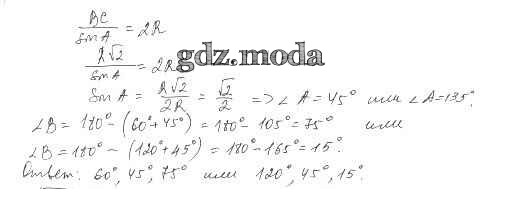 BC/sin A = 2R
R√2/sin A = 2R
gdz.moda
sin A = R√2/2R = √2/2 => ∠A = 45° или ∠A=135°.
∠B = 180° - (60°+45°) = 180° - 105° = 75° или
∠B = 180° - (120°+45°) = 180° - 165° = 15°.
Ответ: 60°, 45°, 75° или 120°, 45°, 15°.